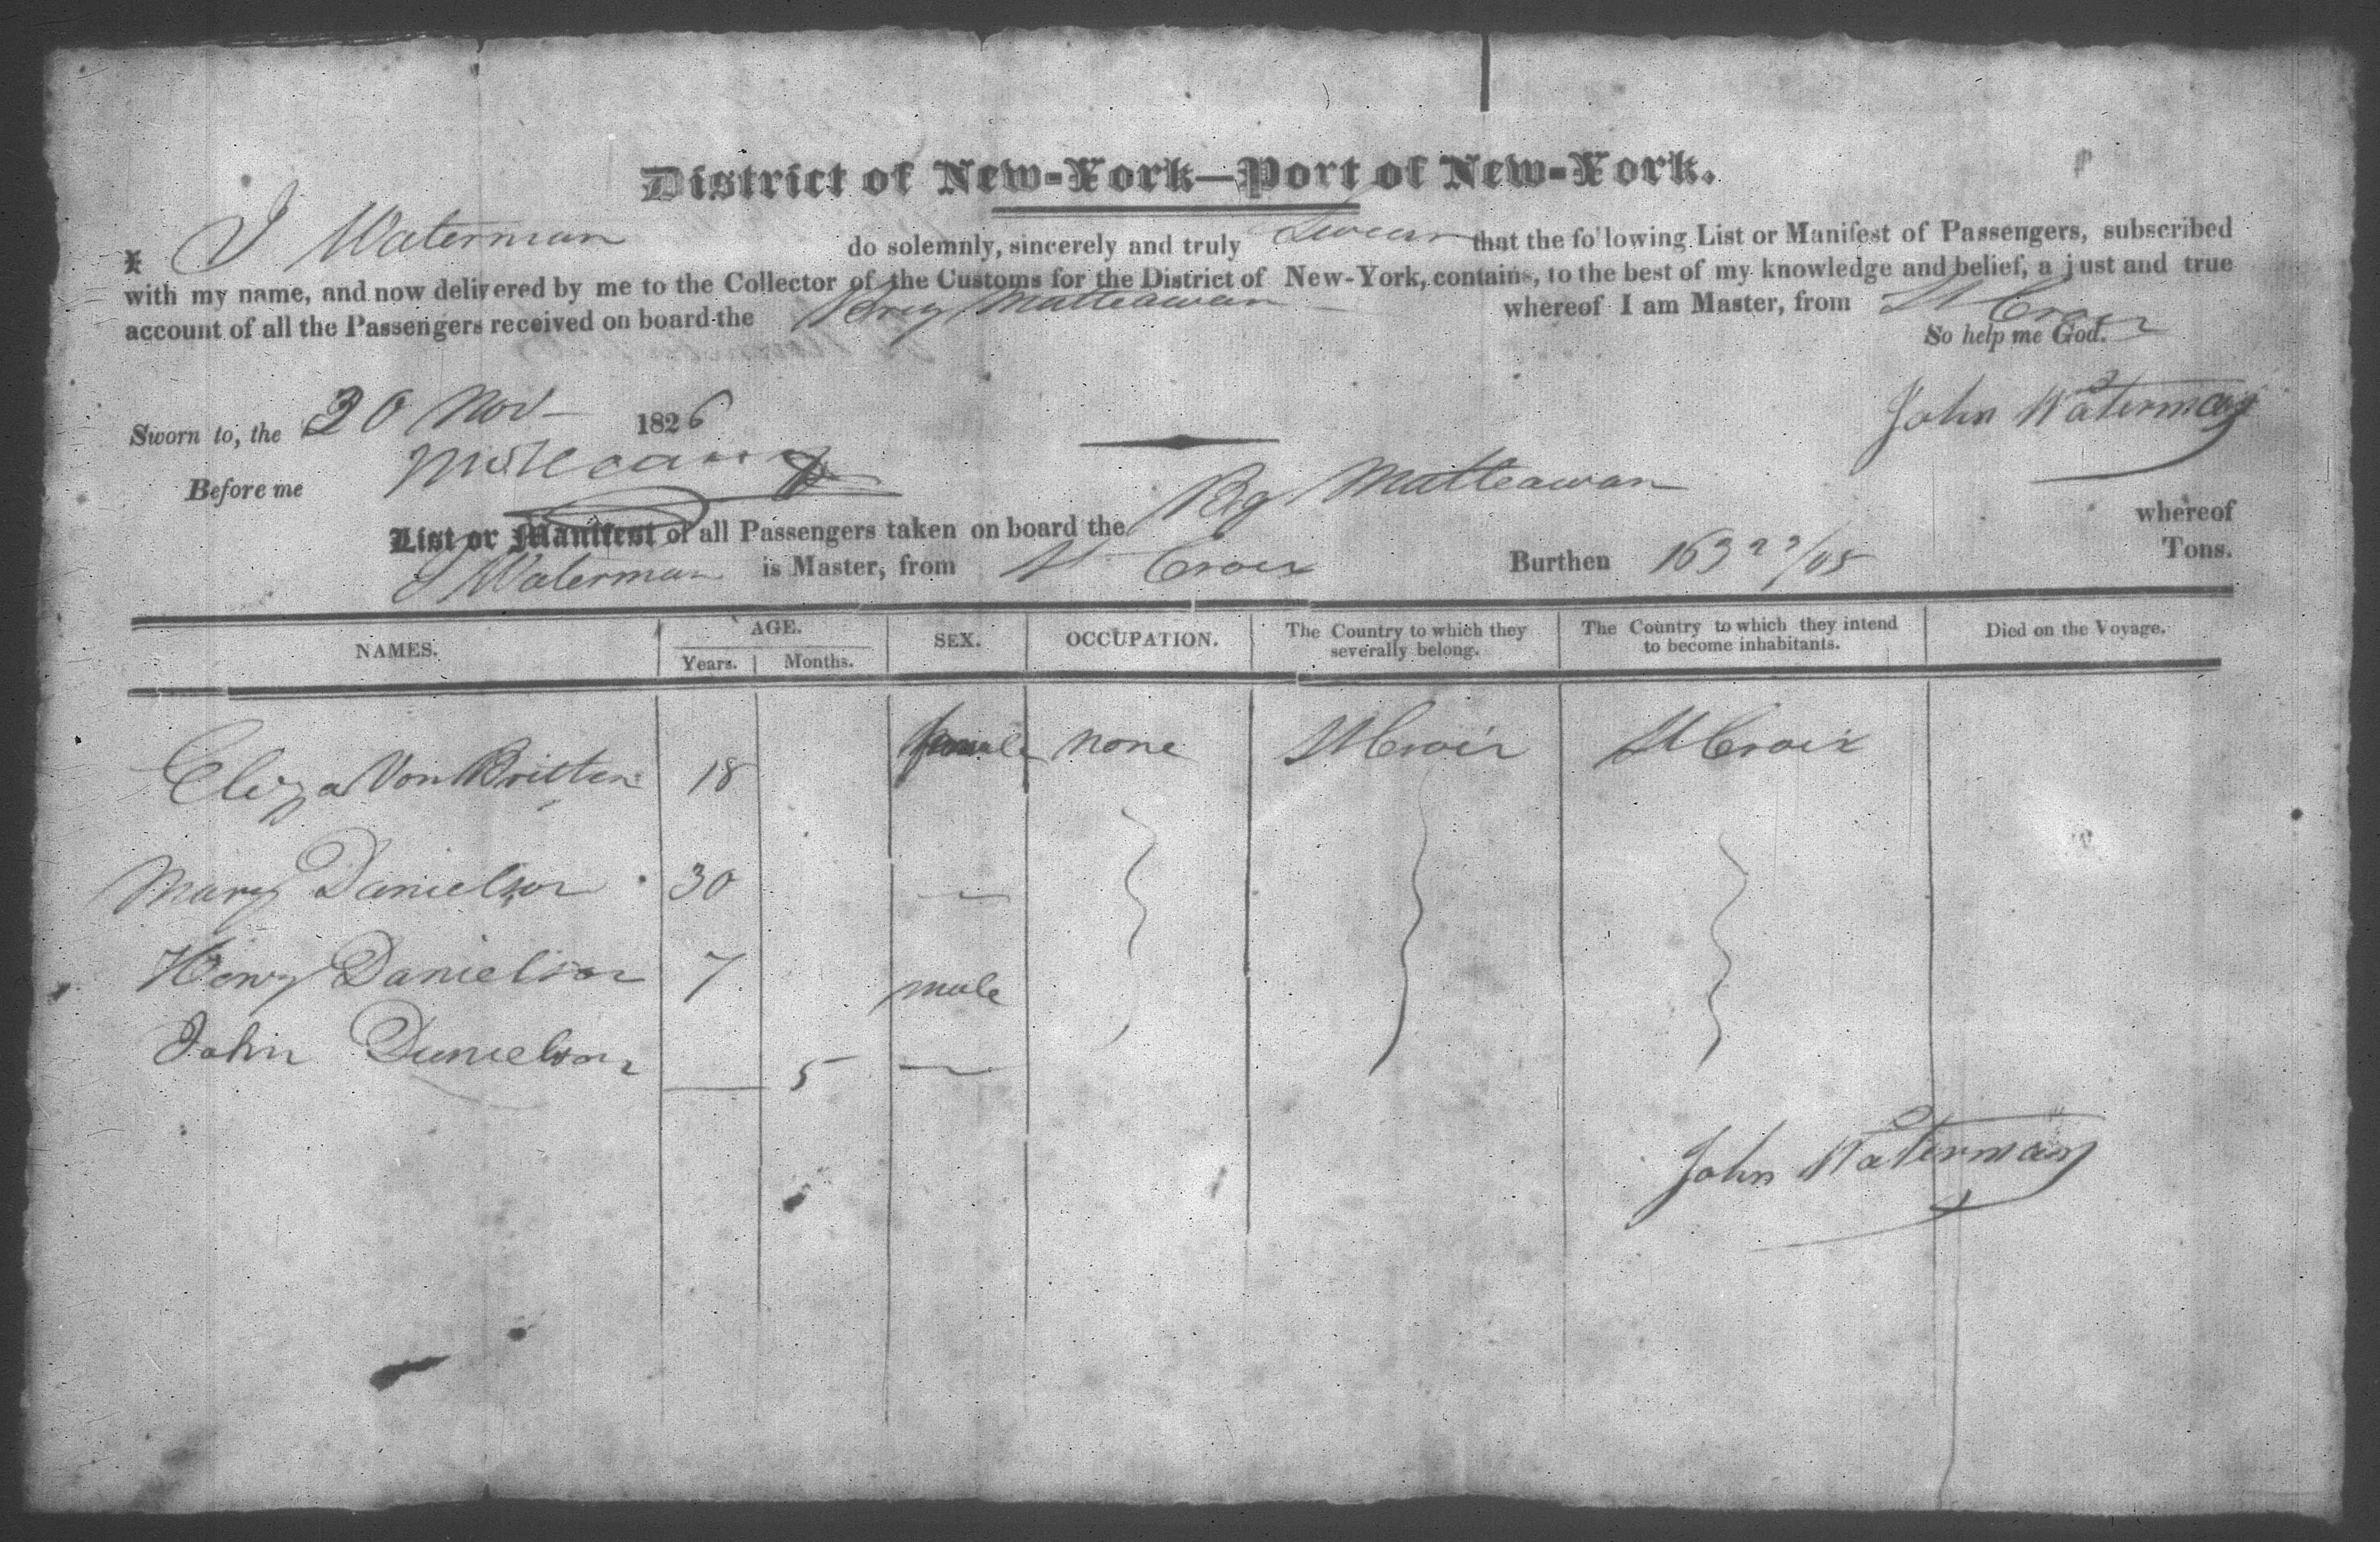 District of New-York—Port of New-York.
I J Waterman do solemnly, sincerely and truly Swear that the following List or Manifest of Passengers, subscribed
with my name, and now delivered by me to the Collector of the Customs for the District of New-York, contains, to the best of my knowledge and belief, a just and true
account of all the Passengers received on board the Brig Matteawan whereof I am Master, from St Croix
So help me God.
Sworn to, the 30 Nov 1826
John Waterman
Before me
List or Manifest of all Passengers taken on board the Brg Matteawan whereof
J Waterman is Master, from St Croix Burthen 163 Tons.
NAMES. AGE. SEX. OCCUPATION. The Country to which they severally belong. The Country to which they intend to become inhabitants. Died on the Voyage.
Years. Months.
Eliza Von Britten 18 female none St Croix St Croix
Mary Danielson 30 —
Henry Danielson 7 male
John Danielson — 5 —
John Waterman